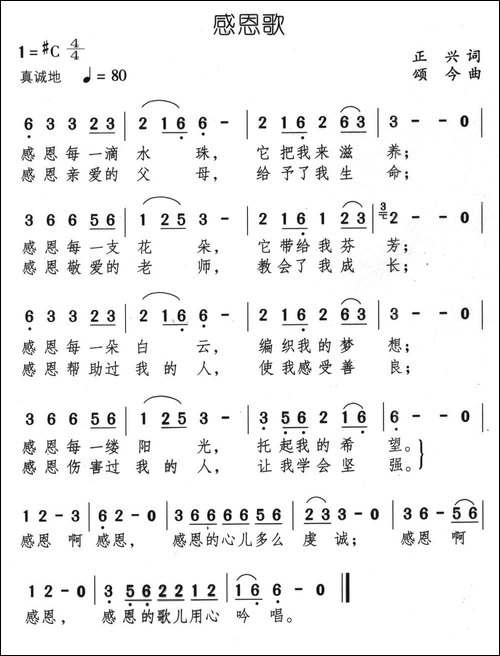 感恩歌
1=#C 4/4
正兴词
真诚地 ♩=80
颂今曲
6 3 3 2 3 | 2 1 6 6 - | 2 1 6 2 6 3 | 3 - - 0 |
感恩每一滴水珠，它把我来滋养；
感恩亲爱的父母，给予了我生命；
3 6 6 5 6 | 1 2 5 3 - | 2 1 6 1 2 3 | 3 2 - - 0 |
感恩每一支花朵，它带给我芬芳；
感恩敬爱的老师，教会了我成长；
6 3 3 2 3 | 2 1 6 6 - | 2 1 6 2 6 3 | 3 - - 0 |
感恩每一朵白云，编织我的梦想；
感恩帮助过我的人，使我感受善良；
3 6 6 5 6 | 1 2 5 3 - | 3 5 6 2 1 6 | 6 - - 0 |
感恩每一缕阳光，托起我的希望。
感恩伤害过我的人，让我学会坚强。
1 2 - 3 | 6 2 - 0 | 3 6 6 6 5 6 | 3 3 - 0 | 3 6 - 5 6 |
感恩啊感恩，感恩的心儿多么虔诚；感恩啊
1 2 - 0 | 3 5 6 2 2 1 2 | 1 6 6 - 0 ‖
感恩，感恩的歌儿用心吟唱。